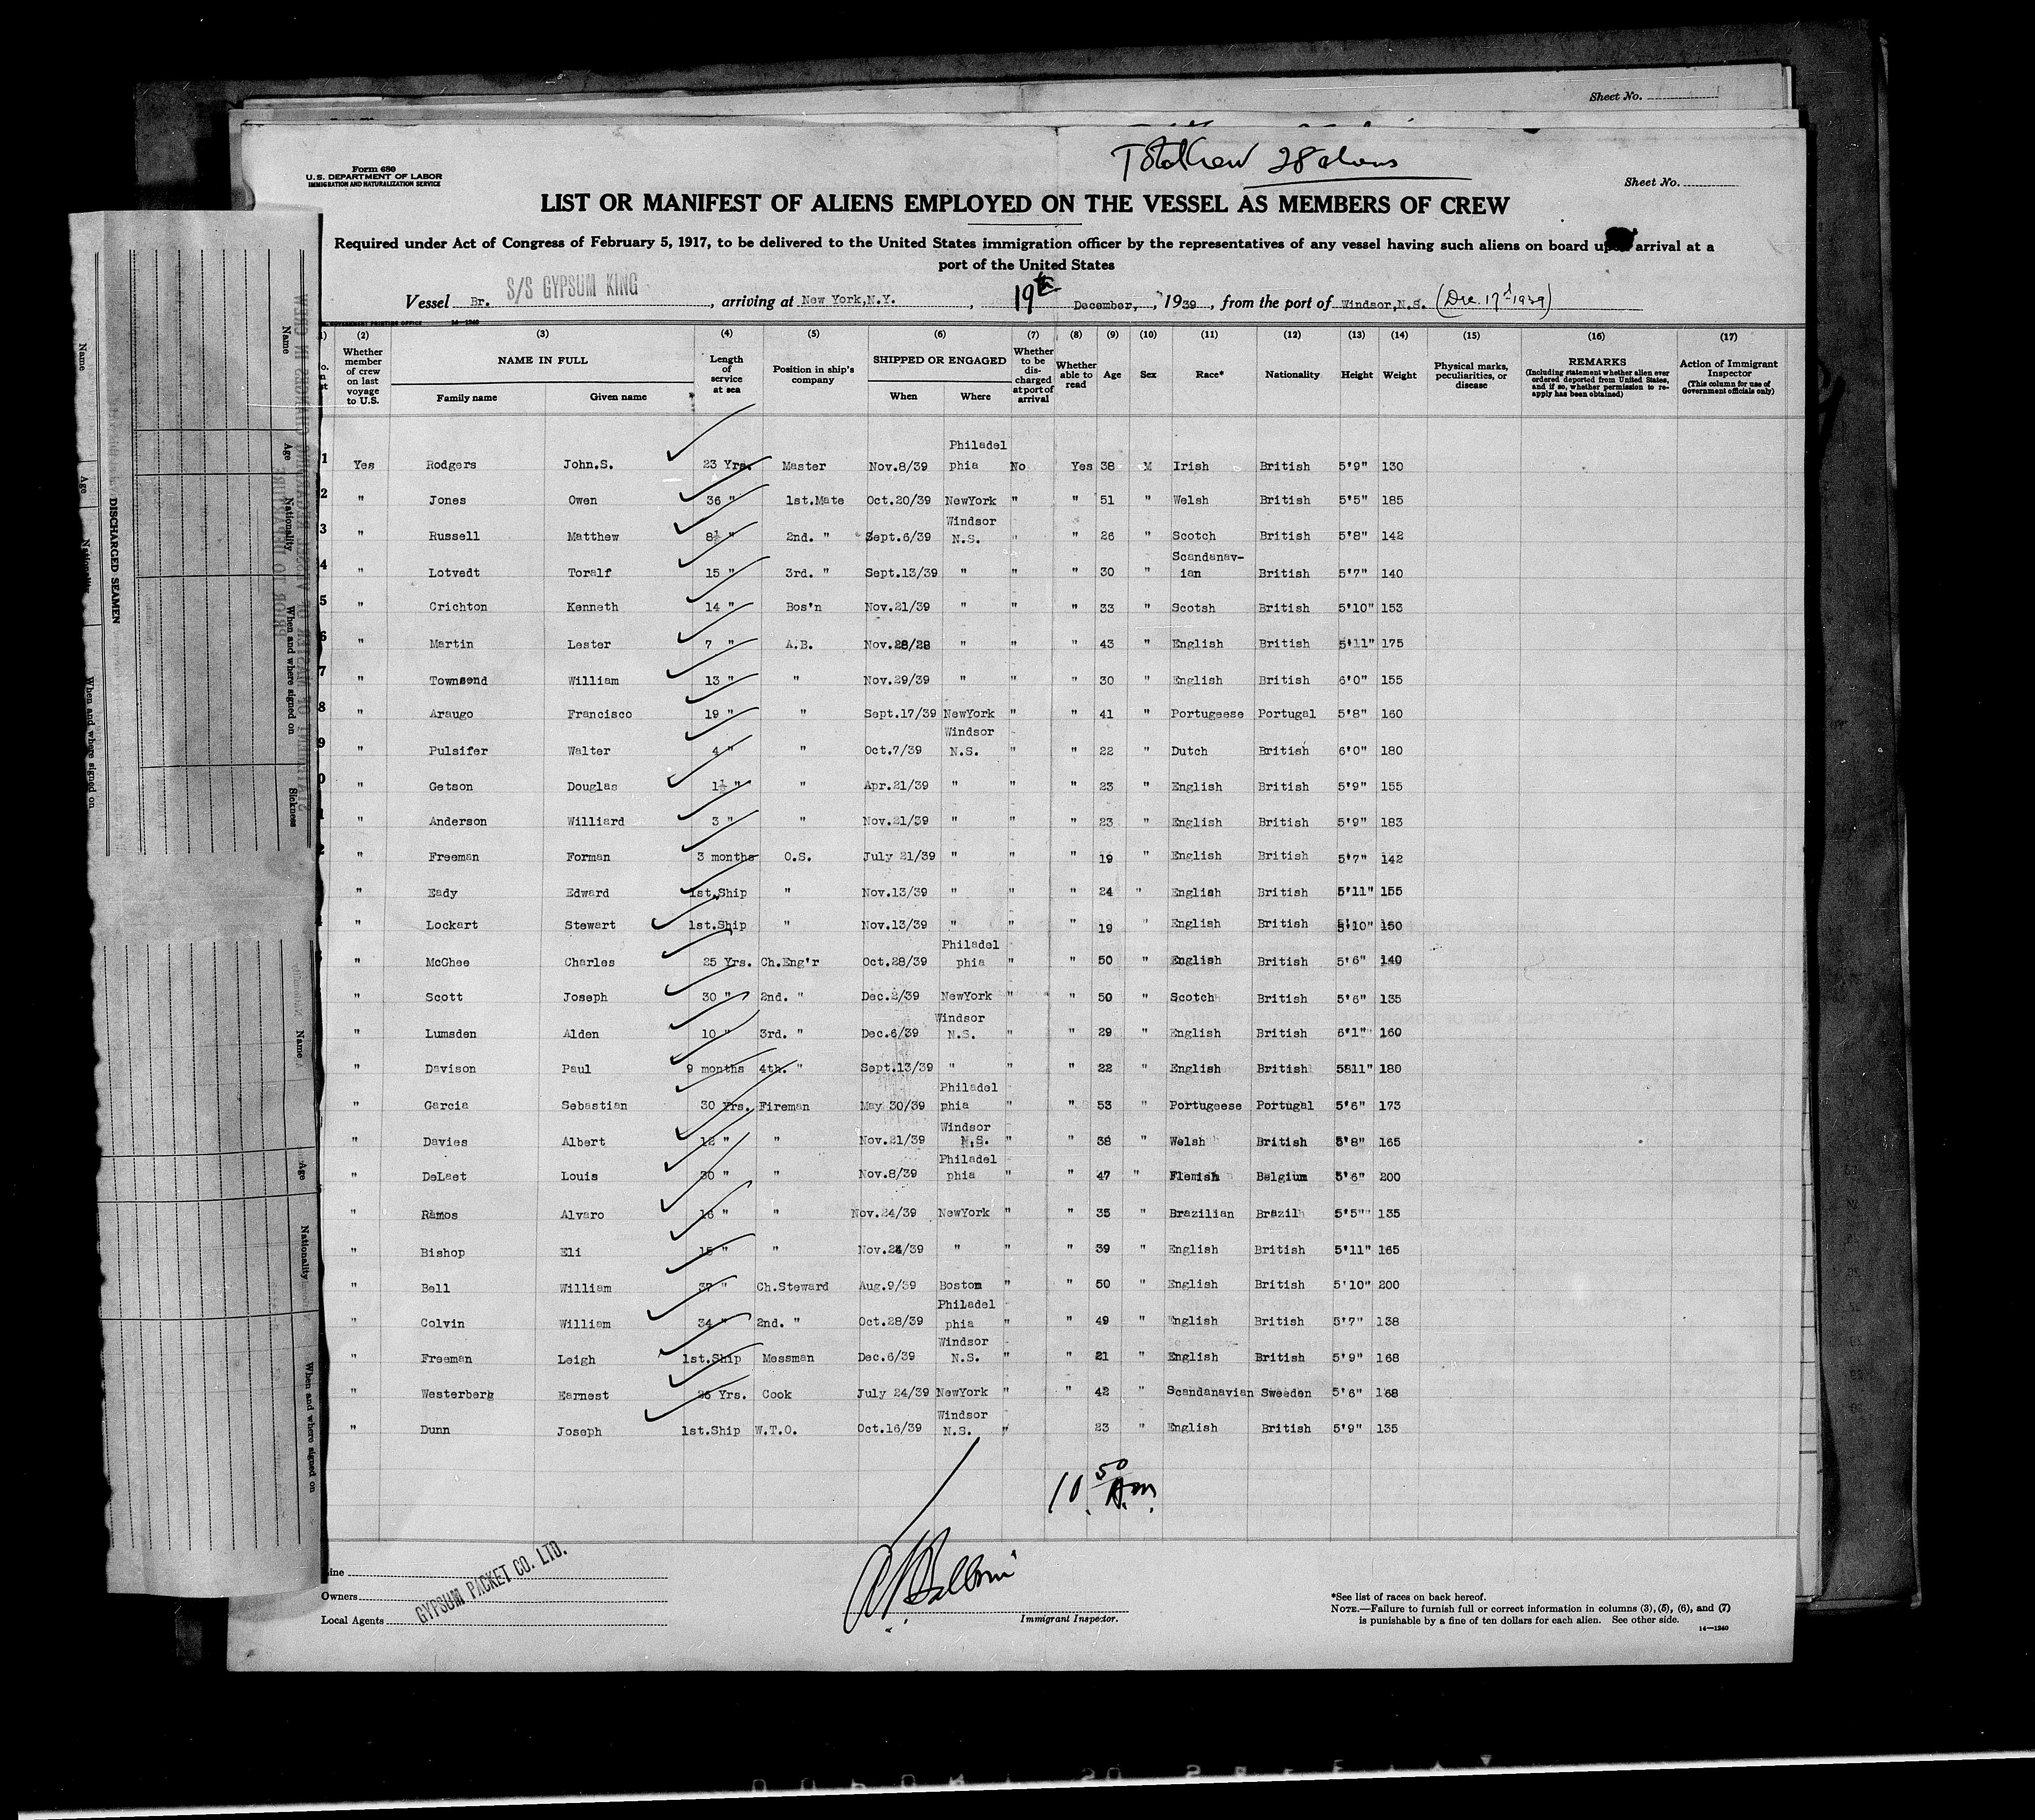 Sheet No.
Form 680
U.S. DEPARTMENT OF LABOR
IMMIGRATION AND NATURALIZATION SERVICE
Total Crew 28 aliens
Sheet No.
LIST OR MANIFEST OF ALIENS EMPLOYED ON THE VESSEL AS MEMBERS OF CREW
Required under Act of Congress of February 5, 1917, to be delivered to the United States immigration officer by the representatives of any vessel having such aliens on board upon arrival at a
port of the United States
Vessel Br. S/S GYPSUM KING, arriving at New York,N.Y., 19th December, 1939, from the port of Windsor,N.S. (Dec. 17th 1939)
(2) (3) (4) (5) (6) (7) (8) (9) (10) (11) (12) (13) (14) (15) (16) (17)
Whether member of crew on last voyage to U.S. NAME IN FULL Family name Given name Length of service at sea Position in ship's company SHIPPED OR ENGAGED When Where Whether to be discharged at port of arrival Whether able to read Age Sex Race* Nationality Height Weight Physical marks, peculiarities, or disease REMARKS (Including statement whether alien ever ordered deported from United States, and if so, whether permission to reapply has been obtained) Action of Immigrant Inspector (This column for use of Government officials only)
1 Yes Rodgers John.S. 23 Yrs. Master Nov.8/39 Philadelphia No Yes 38 M Irish British 5'9" 130
2 " Jones Owen 36 " 1st.Mate Oct.20/39 NewYork " " 51 " Welsh British 5'5" 185
3 " Russell Matthew 8½ " 2nd. " Sept.6/39 Windsor N.S. " " 26 " Scotch British 5'8" 142
4 " Lotvedt Toralf 15 " 3rd. " Sept.13/39 " " " 30 " Scandanav-ian British 5'7" 140
5 " Crichton Kenneth 14 " Bos'n Nov.21/39 " " " 33 " Scotsh British 5'10" 153
6 " Martin Lester 7 " A.B. Nov.28/28 " " " 43 " English British 5'11" 175
7 " Townsend William 13 " " Nov.29/39 " " " 30 " English British 6'0" 155
8 " Araugo Francisco 19 " " Sept.17/39 NewYork " " 41 " Portugeese Portugal 5'8" 160
9 " Pulsifer Walter 4 " " Oct.7/39 Windsor N.S. " " 22 " Dutch British 6'0" 180
0 " Getson Douglas 1½ " " Apr.21/39 " " " 23 " English British 5'9" 155
1 " Anderson Williard 3 " " Nov.21/39 " " " 23 " English British 5'9" 183
2 " Freeman Forman 3 months O.S. July 21/39 " " " 19 " English British 5'7" 142
" Eady Edward 1st.Ship " Nov.13/39 " " " 24 " English British 5'11" 155
" Lockart Stewart 1st.Ship " Nov.13/39 " " " 19 " English British 5'10" 150
" McGhee Charles 25 Yrs. Ch.Eng'r Oct.28/39 Philadelphia " " 50 " English British 5'6" 140
" Scott Joseph 30 " 2nd. " Dec.2/39 NewYork " " 50 " Scotch British 5'6" 135
" Lumsden Alden 10 " 3rd. " Dec.6/39 Windsor N.S. " " 29 " English British 6'1" 160
" Davison Paul 9 months 4th. " Sept.13/39 " " " 22 " English British 5811" 180
" Garcia Sebastian 30 Yrs. Fireman May 30/39 Philadelphia " " 53 " Portugeese Portugal 5'6" 173
" Davies Albert 12 " " Nov.21/39 Windsor N.S. " " 38 " Welsh British 5'8" 165
" DeLaet Louis 30 " " Nov.8/39 Philadelphia " " 47 " Flemish Belgium 5'6" 200
" Ramos Alvaro 16 " " Nov.24/39 NewYork " " 35 " Brazilian Brazil 5'5" 135
" Bishop Eli 15 " " Nov.24/39 " " " 39 " English British 5'11" 165
" Bell William 37 " Ch.Steward Aug.9/39 Boston " " 50 " English British 5'10" 200
" Colvin William 34 " 2nd. " Oct.28/39 Philadelphia " " 49 " English British 5'7" 138
" Freeman Leigh 1st.Ship Messman Dec.6/39 Windsor N.S. " " 21 " English British 5'9" 168
" Westerberg Earnest 26 Yrs. Cook July 24/39 NewYork " " 42 " Scandanavian Sweeden 5'6" 168
" Dunn Joseph 1st.Ship W.T.O. Oct.16/39 Windsor N.S. " 23 " English British 5'9" 135
10 50 A.m.
Line
Owners
Local Agents
GYPSUM PACKET CO. LTD.
Immigrant Inspector.
*See list of races on back hereof.
NOTE.—Failure to furnish full or correct information in columns (3), (5), (6), and (7)
is punishable by a fine of ten dollars for each alien. See other side.
14—1240
DISCHARGED SEAMEN
Name
Age
Nationality
When and where signed on
Sickness
Name
Age
Nationality
When and where signed on